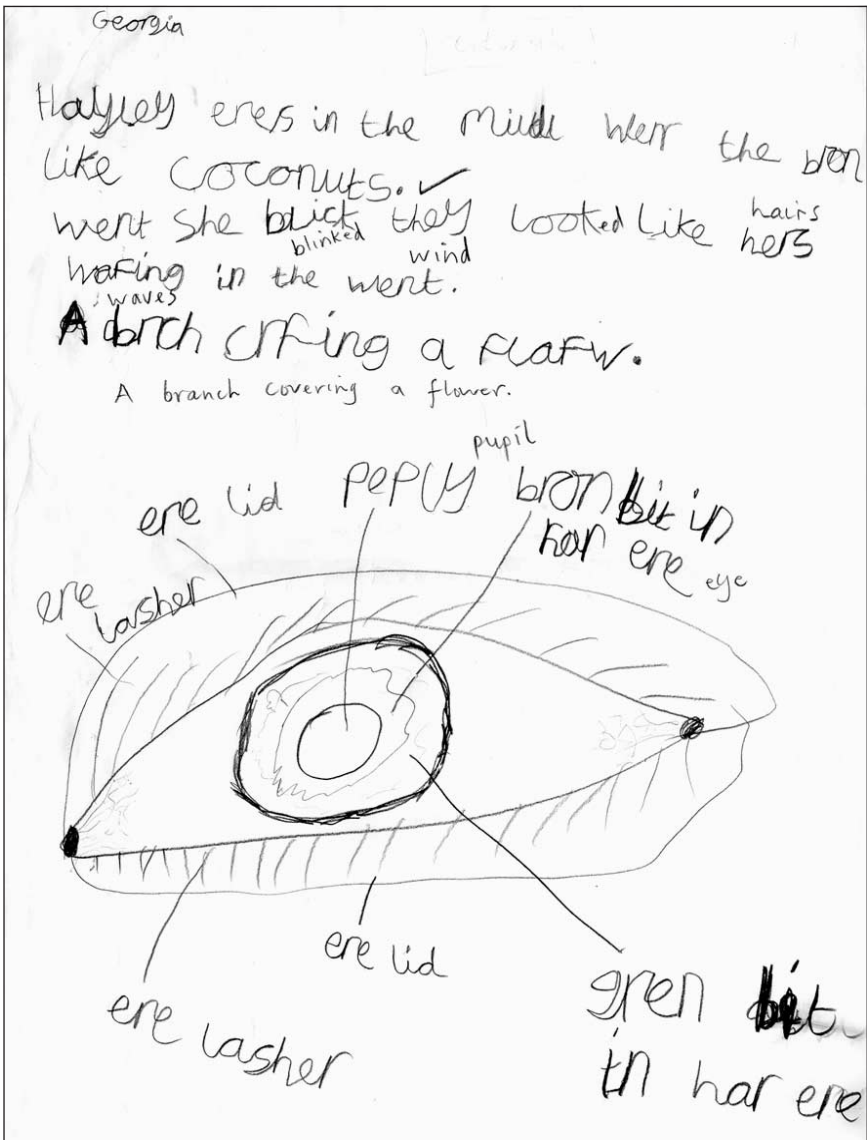 Georgia
Hayley eres in the middl werr the bron
like coconuts. ✓
went she blict they looked like hers
blinked hairs
wafing in the went.
waves wind
A brnch crfing a flafw.
A branch covering a flower.
pupil
ere lid peply bron bit in
har ere eye
ere
lasher
ere lid
ere lasher
gren bit
in har ere